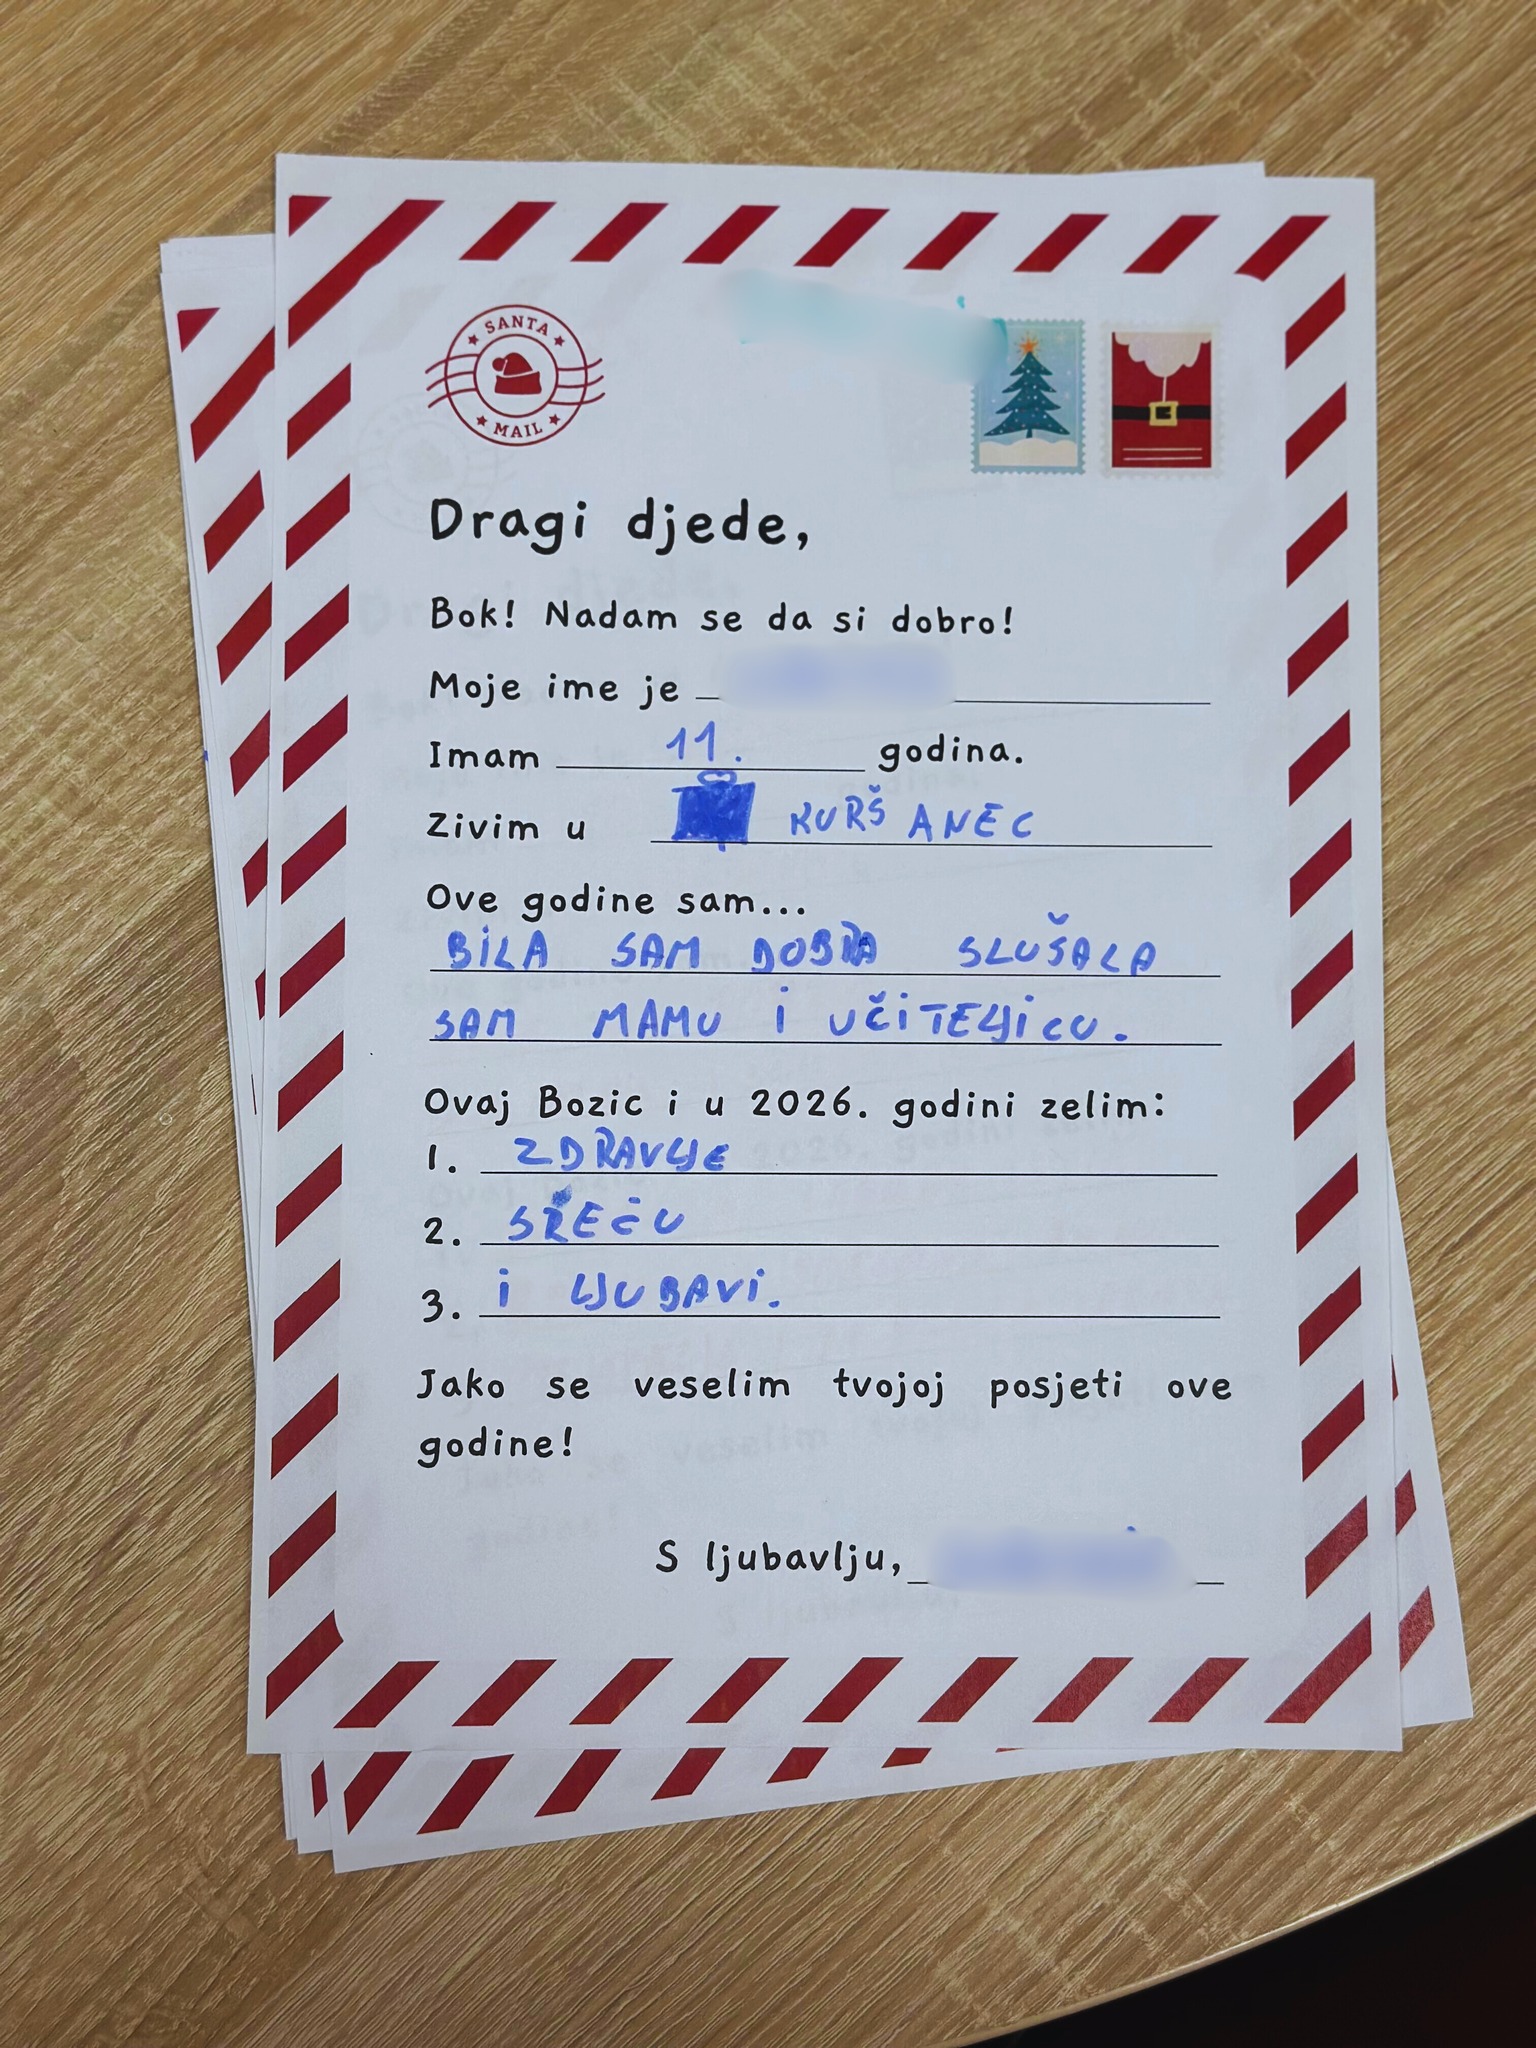 SANTA
MAIL
Dragi djede,
Bok! Nadam se da si dobro!
Moje ime je
Imam 11. godina.
Zivim u KURŠANEC
Ove godine sam...
BILA SAM DOBRA SLUŠALA
SAM MAMU I UČITELJICU.
Ovaj Bozic i u 2026. godini zelim:
1. ZDRAVLJE
2. SREĆU
3. i LJUBAVI.
Jako se veselim tvojoj posjeti ove
godine!
S ljubavlju,